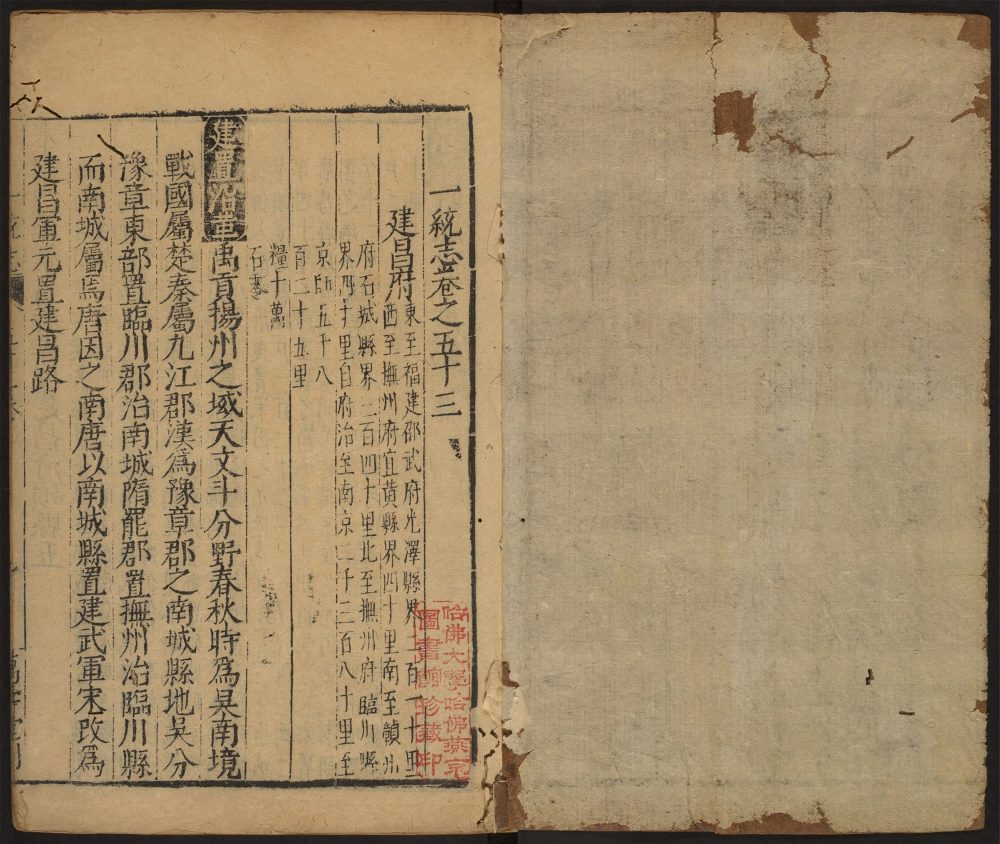 一統志卷之五十三
建昌府 東至福建邵武府光澤縣界一百一十里
西至撫州府宜黃縣界四十里南至贛州
府石城縣界二百四十里北至撫州府臨川縣
界四十里自府治至南京二千三百八十里至
京師五千八
百二十五里
糧十萬
石零
建置沿革 禹貢揚州之域天文斗分野春秋時爲吳南境
戰國屬楚秦屬九江郡漢爲豫章郡之南城縣地吳分
豫章東部置臨川郡治南城隋罷郡置撫州治臨川縣
而南城屬焉唐因之南唐以南城縣置建武軍宋改爲
建昌軍元置建昌路
哈佛大學哈佛燕京
圖書館珍藏印